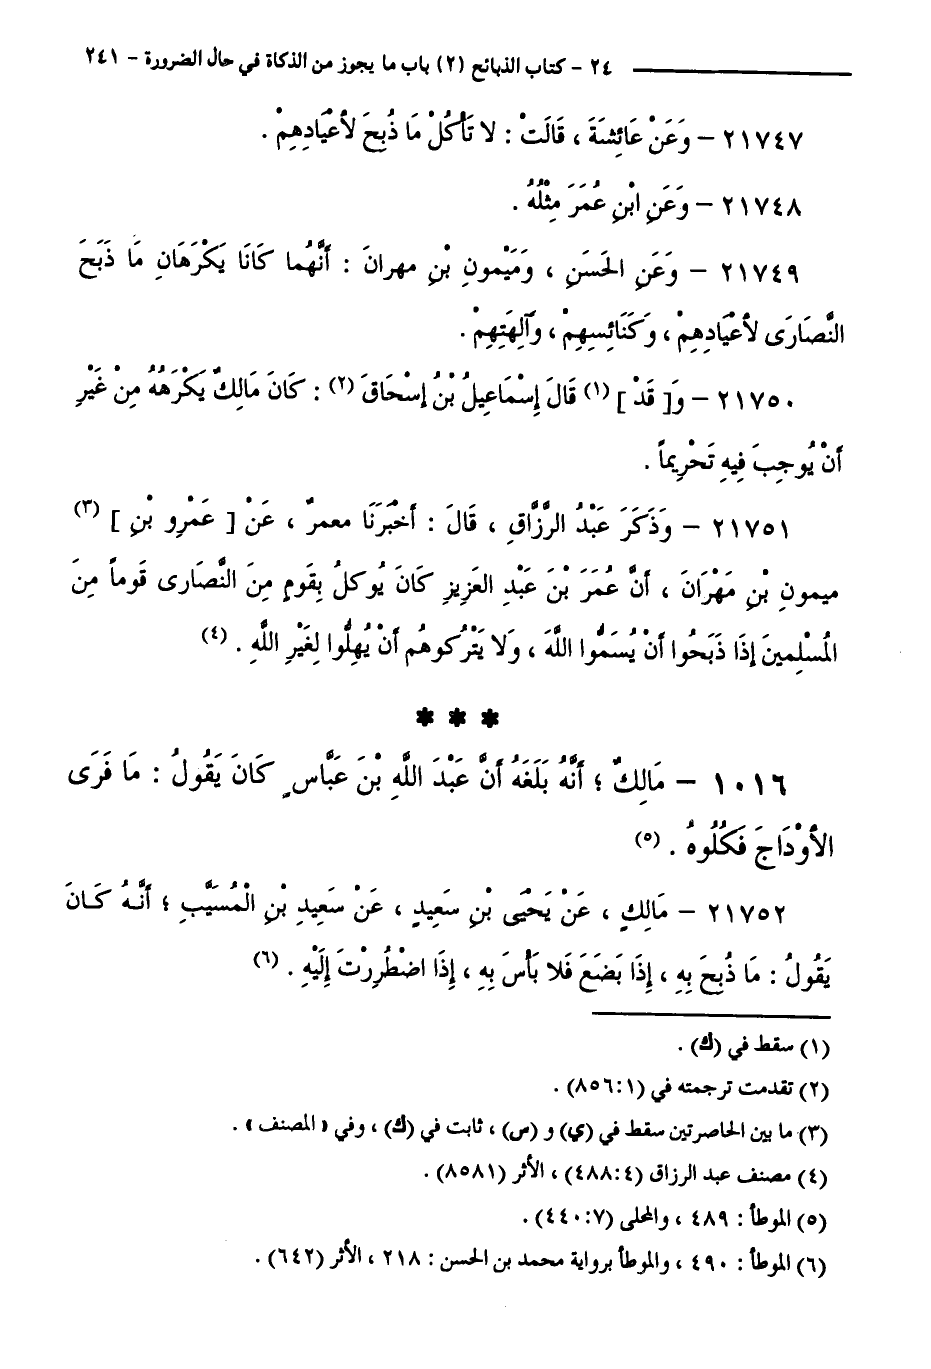 ٢٤ - كتاب الذبائح (٢) باب ما يجوز من الذكاة في حال الضرورة - ٢٤١
٢١٧٤٧ - وَعَنْ عَائِشَةَ ، قَالَتْ : لا تَأْكُلْ مَا ذُبِحَ لأَعْيَادِهِمْ .
٢١٧٤٨ - وَعَنِ ابْنِ عُمَرَ مِثْلُهُ .
٢١٧٤٩ - وَعَنِ الحَسَنِ ، وَمَيْمونِ بْنِ مهرانَ : أَنَّهُما كَانَا يَكْرَهَانِ مَا ذَبَحَ
النَّصَارَى لأَعْيَادِهِمْ ، وَكَنَائِسِهِمْ ، وَآلِهَتِهِمْ .
٢١٧٥٠ - وَ[ قَدْ ] (١) قَالَ إِسْمَاعِيلُ بْنُ إِسْحَاقَ (٢) : كَانَ مَالِكٌ يَكْرَهُهُ مِنْ غَيْرِ
أَنْ يُوجِبَ فِيهِ تَحْرِيماً .
٢١٧٥١ - وَذَكَرَ عَبْدُ الرَّزَّاقِ ، قَالَ : أَخْبَرَنَا معمرٌ ، عَنْ [ عَمْرِو بْنِ ] (٣)
ميمونِ بْنِ مَهْرَانَ ، أَنَّ عُمَرَ بْنَ عَبْدِ العَزِيزِ كَانَ يُوكلُ بِقَومٍ مِنَ النَّصَارى قَوماً مِنَ
المُسْلِمينَ إِذَا ذَبَحُوا أَنْ يُسَمُّوا اللَّهَ ، وَلا يَتْرُكوهُم أَنْ يُهِلُّوا لِغَيْرِ اللَّهِ . (٤)
* * *
١٠١٦ - مَالِكٌ ؛ أَنَّهُ بَلَغَهُ أَنَّ عَبْدَ اللَّهِ بْنَ عَبَّاسٍ كَانَ يَقُولُ : مَا فَرَى
الأَوْدَاجَ فَكُلُوهُ . (٥)
٢١٧٥٢ - مَالِكٍ ، عَنْ يَحْيَى بْنِ سَعِيدٍ ، عَنْ سَعِيدِ بْنِ الْمُسَيَّبِ ؛ أَنَّهُ كَانَ
يَقُولُ : مَا ذُبِحَ بِهِ ، إِذَا بَضَعَ فَلا بَأْسَ بِهِ ، إِذَا اضْطُرِرْتَ إِلَيْهِ . (٦)
(١) سقط في (ك) .
(٢) تقدمت ترجمته في (١:٨٥٦) .
(٣) ما بين الحاصرتين سقط في (ي) و (س) ، ثابت في (ك) ، وفي « المصنف » .
(٤) مصنف عبد الرزاق (٤:٤٨٨) ، الأثر (٨٥٨١) .
(٥) الموطأ : ٤٨٩ ، والمحلى (٧:٤٤٠) .
(٦) الموطأ : ٤٩٠ ، والموطأ برواية محمد بن الحسن : ٢١٨ ، الأثر (٦٤٢) .